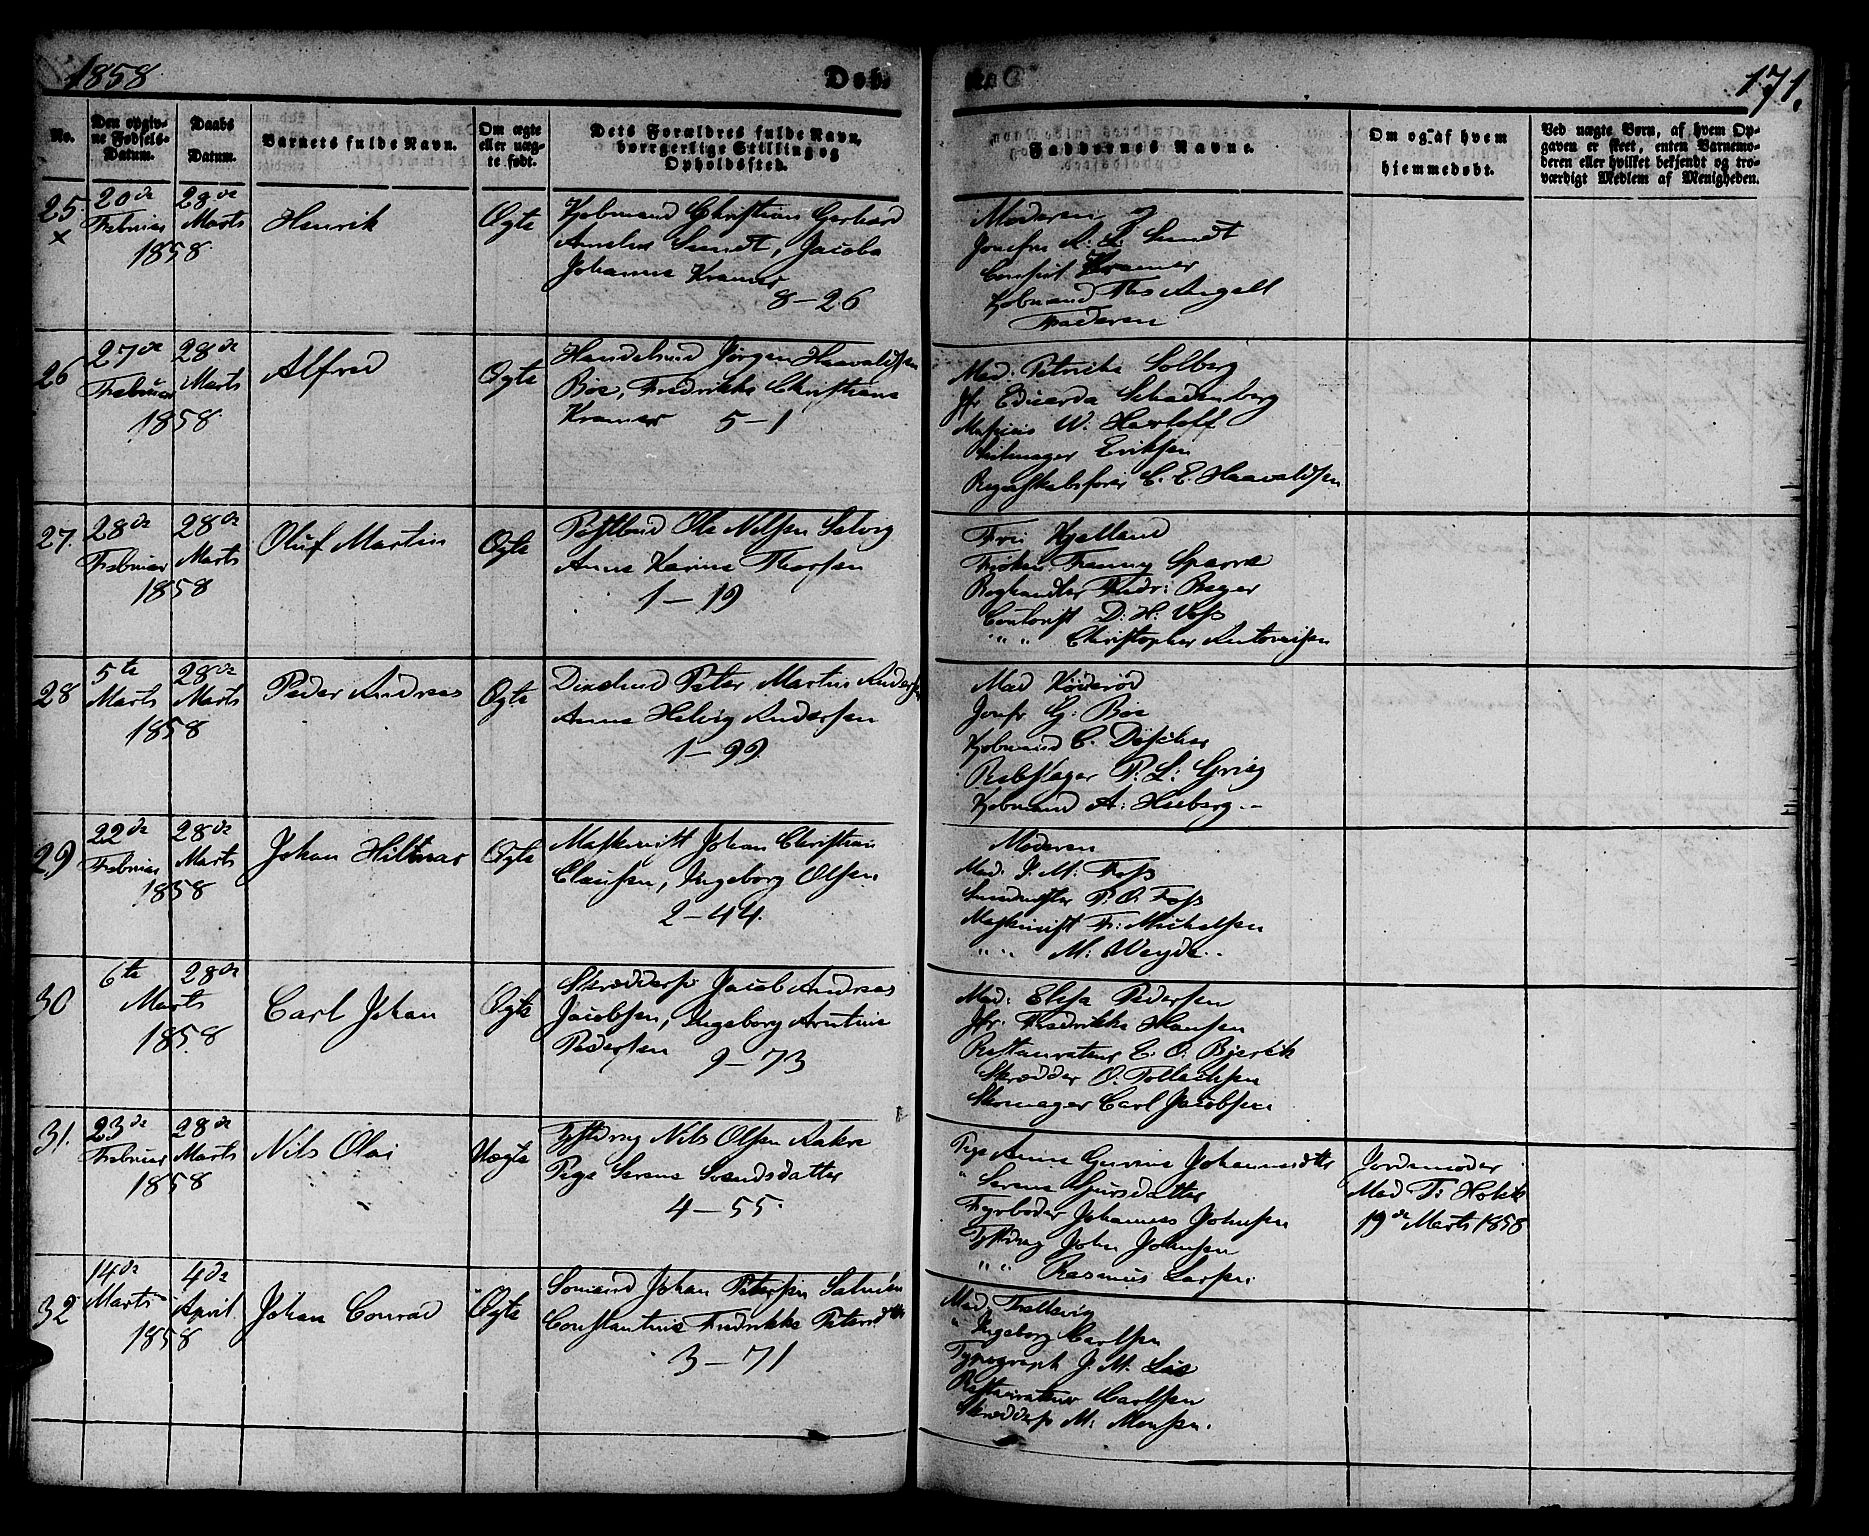 1858
Døb-
171.
No.
Den opgiv-
ne Fødsels-
Datum.
Daabs
Datum.
Barnets fulde Navn.
Om ægte
eller uæg-
te født.
Dets Forældres fulde Navn,
borgerlige Stilling og
Opholdssted.
Faddernes Navne.
Om og af hvem
hjemmedøbt.
Ved uægte Børn, af hvem Op-
gaven er skeet, enten Barnemo-
deren eller hvilket bekjendt og tro-
værdigt Medlem af Menigheden.
25
×
20de
Februar
28de
Marts
1858
Henrik
Ægte
Kjøbmand Christian Gerhard
Sundt, Jacoba
Johanne Kramer
8-26
Moderen
Jomfru A. L. Sundt
Consul Kramer
Kjøbmand Ths Angell
Faderen
26
27de
Februar
28de
Marts
1858
Alfred
Ægte
Handelsmd Jørgen Haavaldsen
Bøe, Fredrikke Christiane
Kramer 5-1
Mad. Petricke Solberg
Jfr Eduarda Schadenberg
W. Hartloff
Eriksen
Regnskabsfører C. E. Haavaldsen
27.
28de
Februar
28de
Marts
1858
Oluf Martin
Ægte
Ole Nilsen Selvig
Anne Karine Thorsen
1-19
Fru Kjelland
Frøken Fanny Sparre
Boghandler Fredr: Beyer
Contorist D. H. Voss
" " Christopher Antonisen
28
5te
Marts
28de
Marts
1858
Peder Andreas
Ægte
Peter Martin Anders
Anne Helvig Andersen
1-99.
Mad
Jomfr G: Bøe
Kjøbmand C. Døscher
Rebslager P. L: Grieg
Kjøbmand A: Heiberg.-
29
22de
Februar
28de
Marts
1858
Johan Hilmar
Ægte
Maskinist Johan Christian
Claussen, Ingeborg Olsen
2-44.
Moderen
Mad. J. M. Foss
P. O. Foss
Maskinist Fr: Michelsen
" " M: Weyde.
30
6te
28de
Marts
1858
Carl Johan
Ægte
Skræddersv Jacob Andreas
Jacobsen, Ingeborg
Pedersen 9-73
Mad. Elisa Pedersen
Jfr. Fredrikke Hansen
Restaurateur E. O. Bjerck
Skrædder O. Tollachsen
Skomager Carl Jacobsen
31.
23de
Februar
28de
Marts
1858
Nils Olai
Uægte
Nils Olsen
Pige Serene Svendsdatter
4-55.
Pige Anne Gurine Johannesdttr
" Serene Gjursdatter
Fyrbøder Johannes Johnsen
John Johnsen
" " Rasmus Larsen.
Jordemoder
Mad T: Holck
19de Marts 1858
32
14de
Marts
4de
April
1858
Johan Conrad
Ægte
Sømand Johan Petersen
Constantine Fredrikke Petersdttr
3-71
Mad
" Ingeborg Carlsen
Typograph J. M. Lie
Restaurateur Carlsen
Skræddersv M. Monsen.